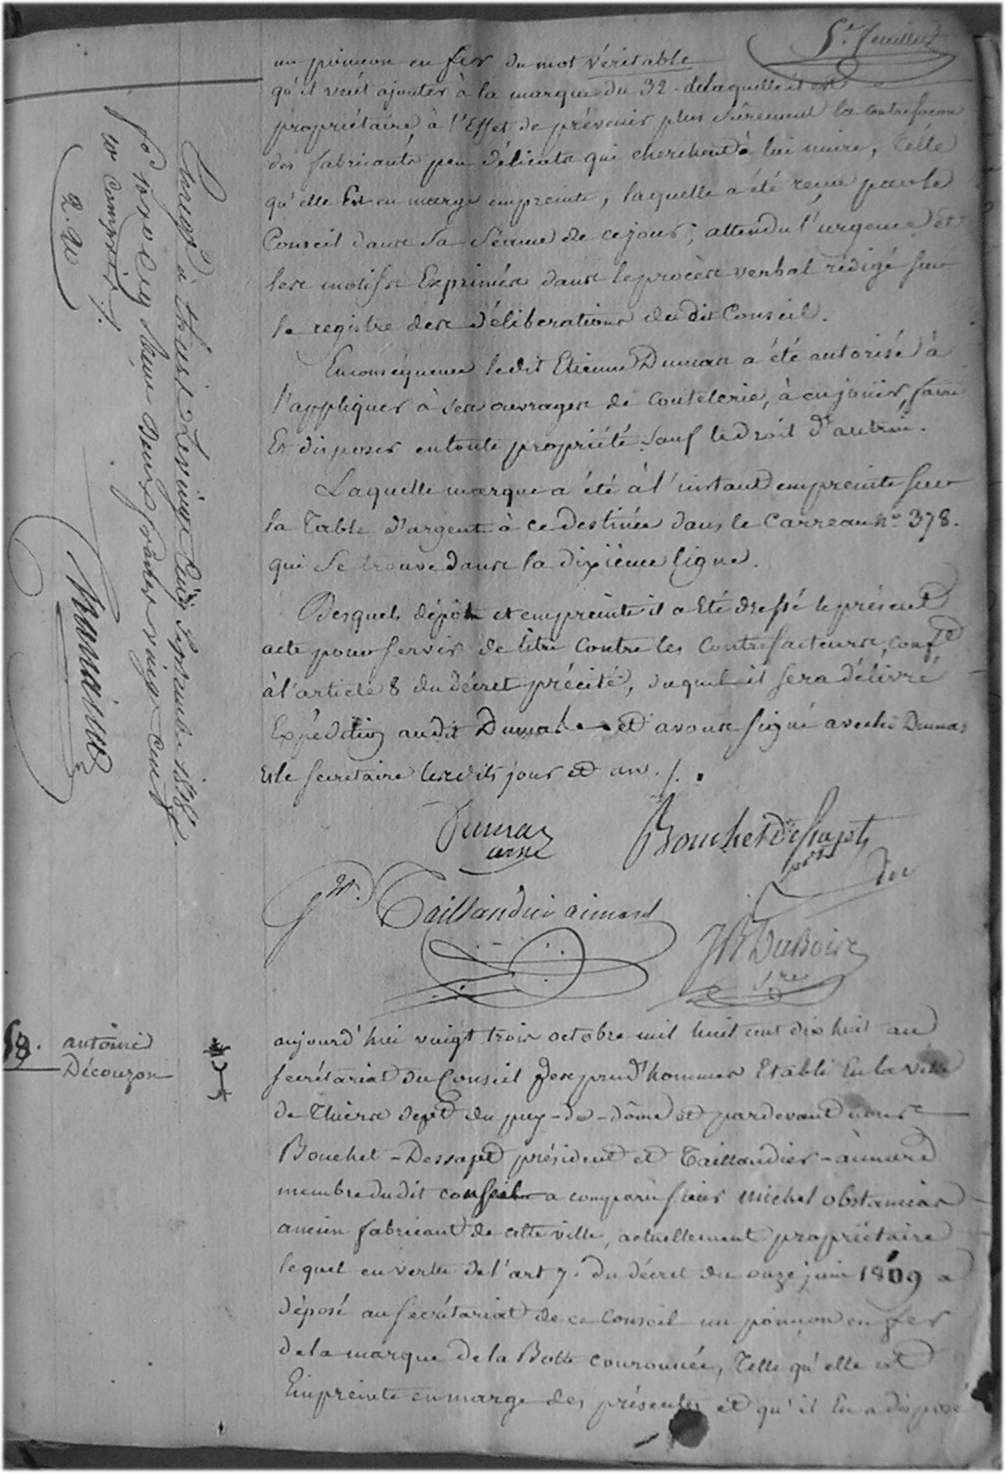 5e. feuillet
un poincon en fer du mot véritable
qu'il veut ajouter à la marque du 32 de laquelle il est
propriétaire, à l'Effet de prévenir plus surement la contrefacon
des fabricants peu délicats qui cherchent à lui nuire, Telle
qu'elle Est en marge empreinte, laquelle a été recue par le
Conseil dans Sa Séance de ce jour; attendu l'urgence et
les motifs Exprimés dans le procès verbal rédigé sur
le registre des délibérations du dit Conseil.
En conséquence le dit Etienne Dumas a été autorisé à
l'appliquer à ses ouvrages de Coutelerie, à en jouir, faire
Et disposer en toute propriété sauf le droit d'autrui.
Laquelle marque a été à l'instant empreinte sur
la Table d'argent à ce destinée dans le Carreau no. 378.
qui se trouve dans la dixième ligne.
Desquels dépôt et empreinte il a été dressé le présent
acte pour servir de titre contre les Contrefacteurs, conft
à l'article 8 du décret précité, duquel il sera délivré
Expédition au dit Dumas et avons signé avec led Dumas
et le Secrétaire lesdits jour et an ./.
Dumas
Bouchet Dessapt
pdt
Taillandier aimard
JB Dubois
sre
Enregé à thiers Le vingt huit septembre 1818
fo
recu deux francs vingt centes
so compris ./.
2. 20
58. antoine
Découzon
aujourd'hui vingt trois octobre mil huit cent dix huit au
Secrétariat du Conseil des prud'hommes Etabli En la ville
de Thiers dept du puy-de-dôme et pardevant nous
Bouchet-Dessapt président et Taillandier-aimard
membre du dit conseil a comparu sieur michel obstancias
ancien fabricant de cette ville, actuellement propriétaire
lequel en vertu de l'art 7. du décret du onze juin 1809 a
déposé au Secrétariat de ce Conseil un poinçon en fer
de la marque de la Botte couronnée, Telle qu'elle est
Empreinte en marge des présentes et qu'il En a disposé